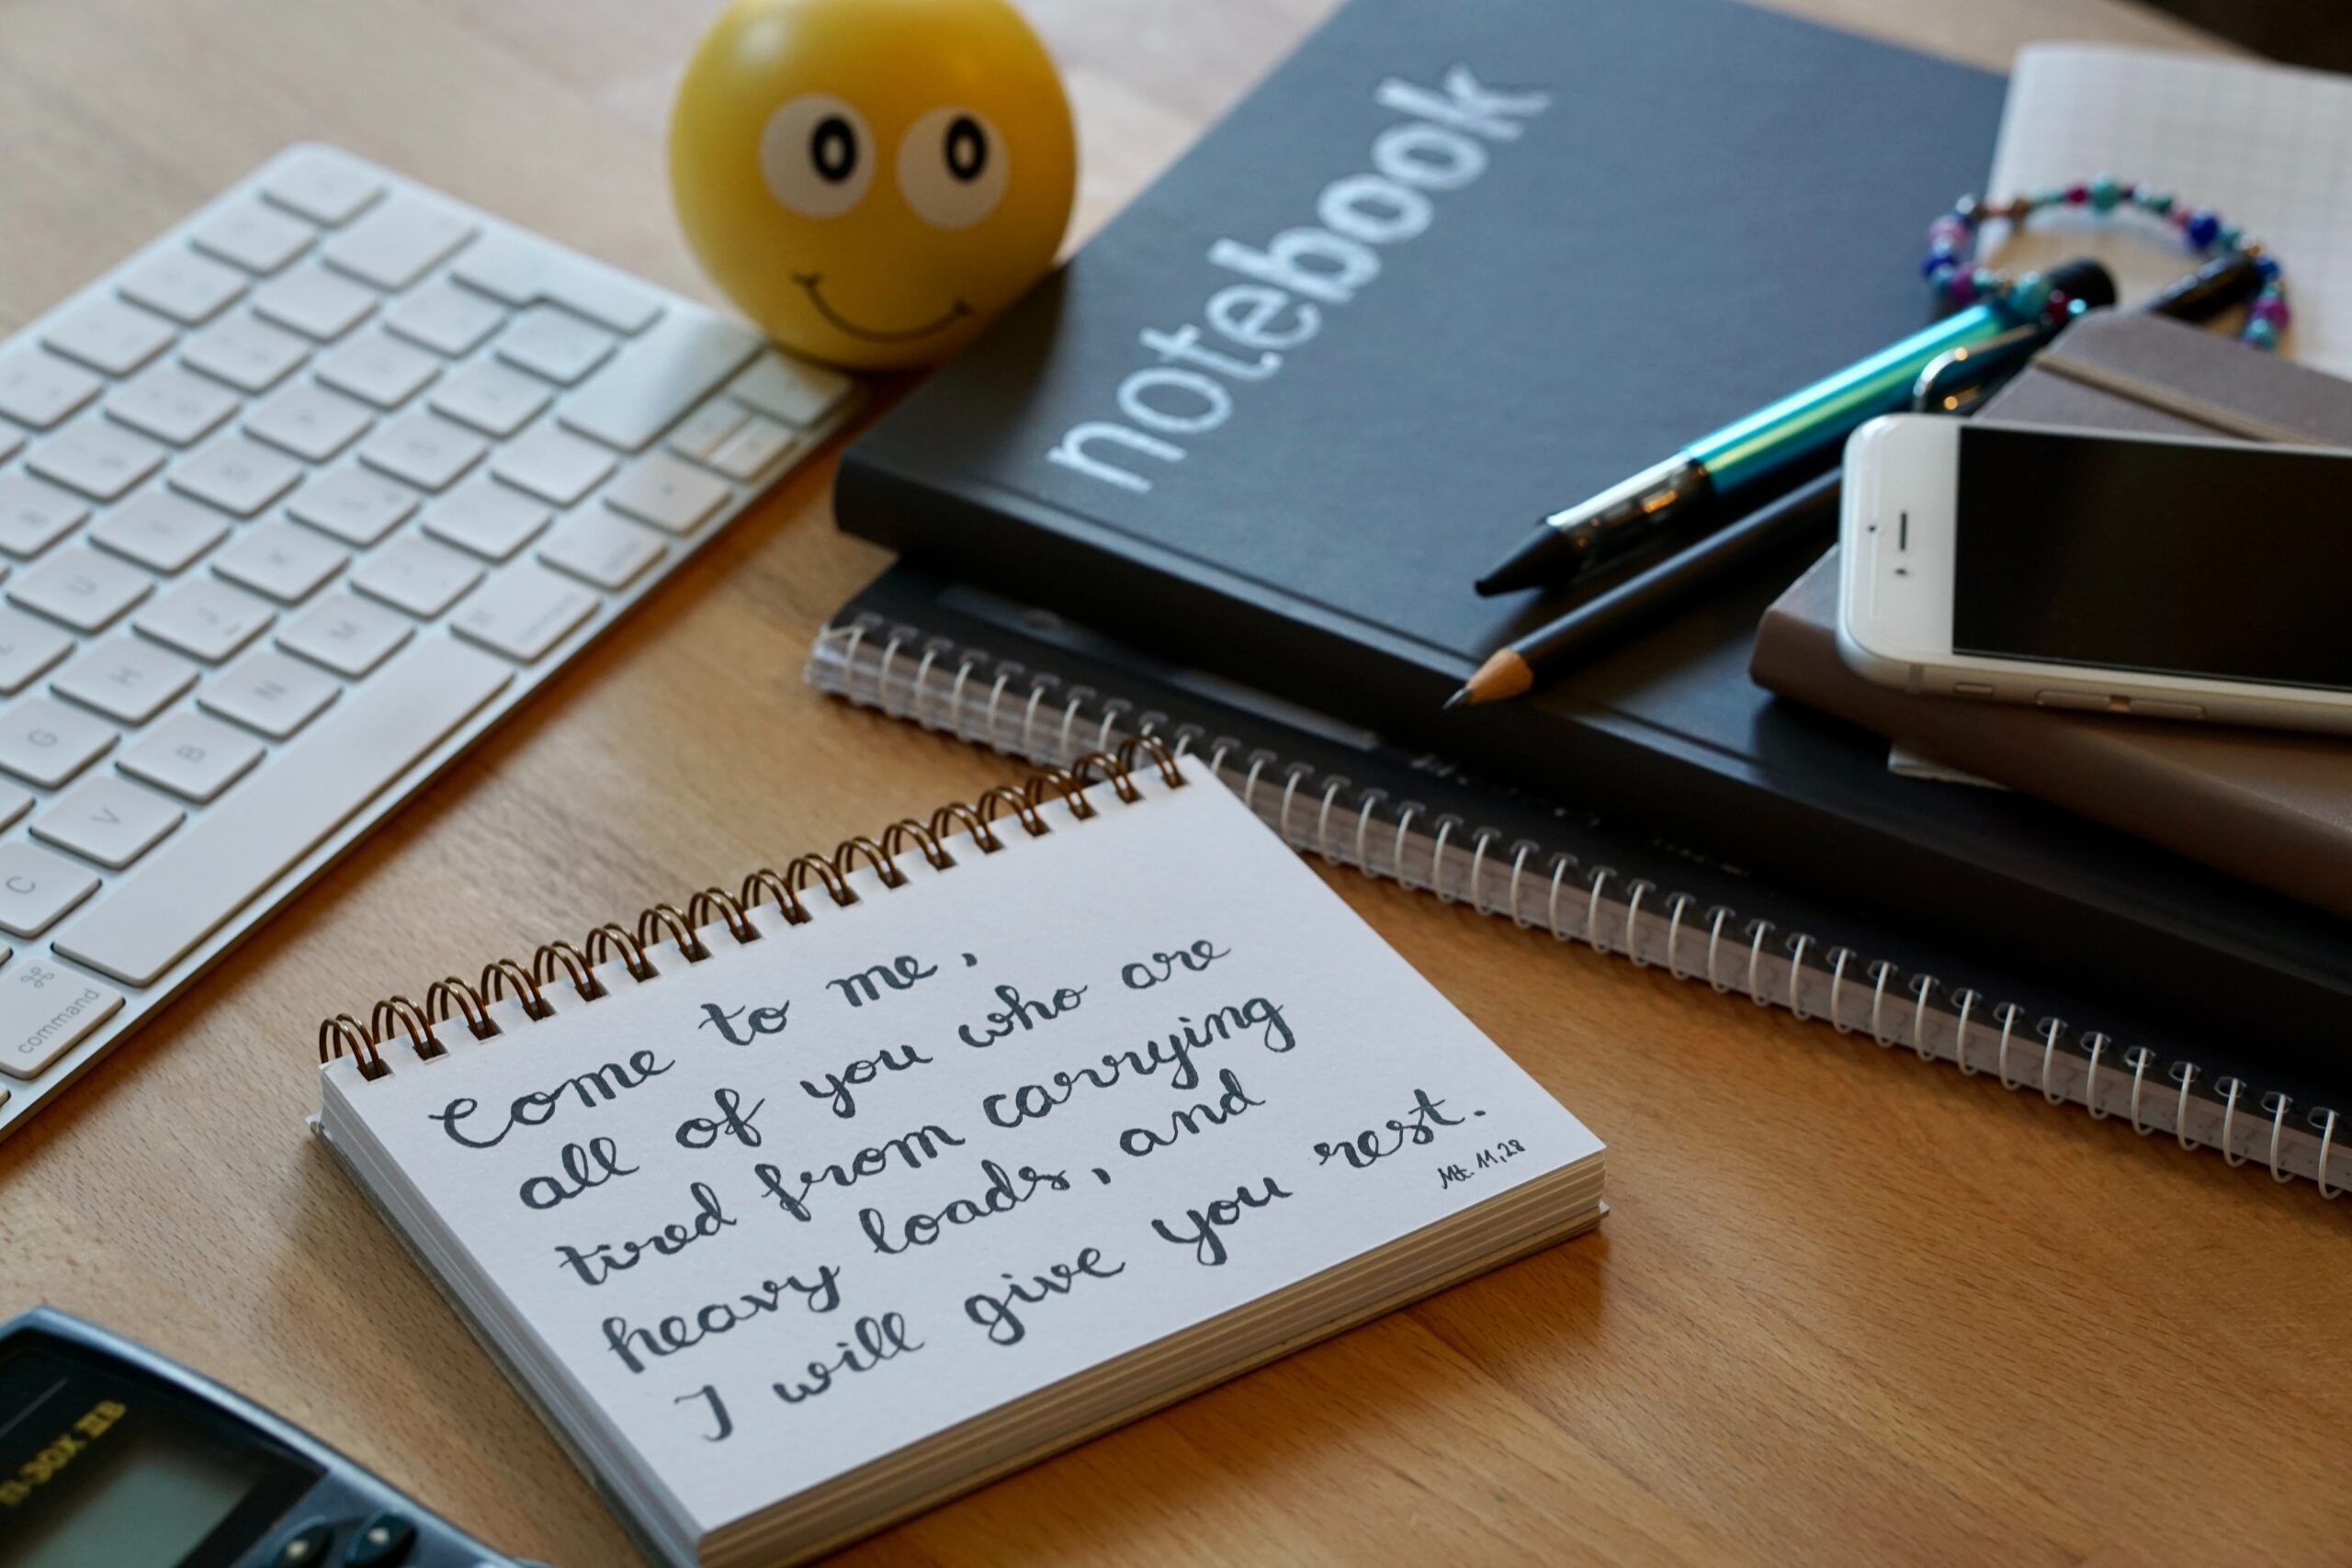 notebook
Come to me,
all of you who are
tired from carrying
heavy loads, and
I will give you rest.
Mt. 11,28
command
C
V
B
G
H
N
M
J
U
K